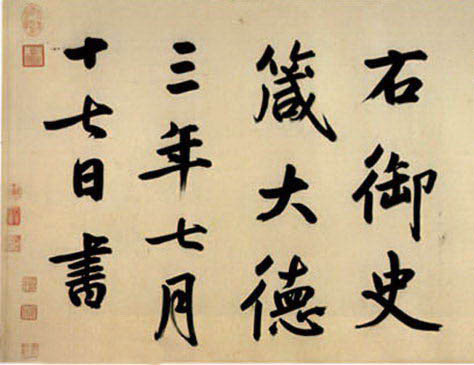 右御史
箴大德
三年七月
十七日書